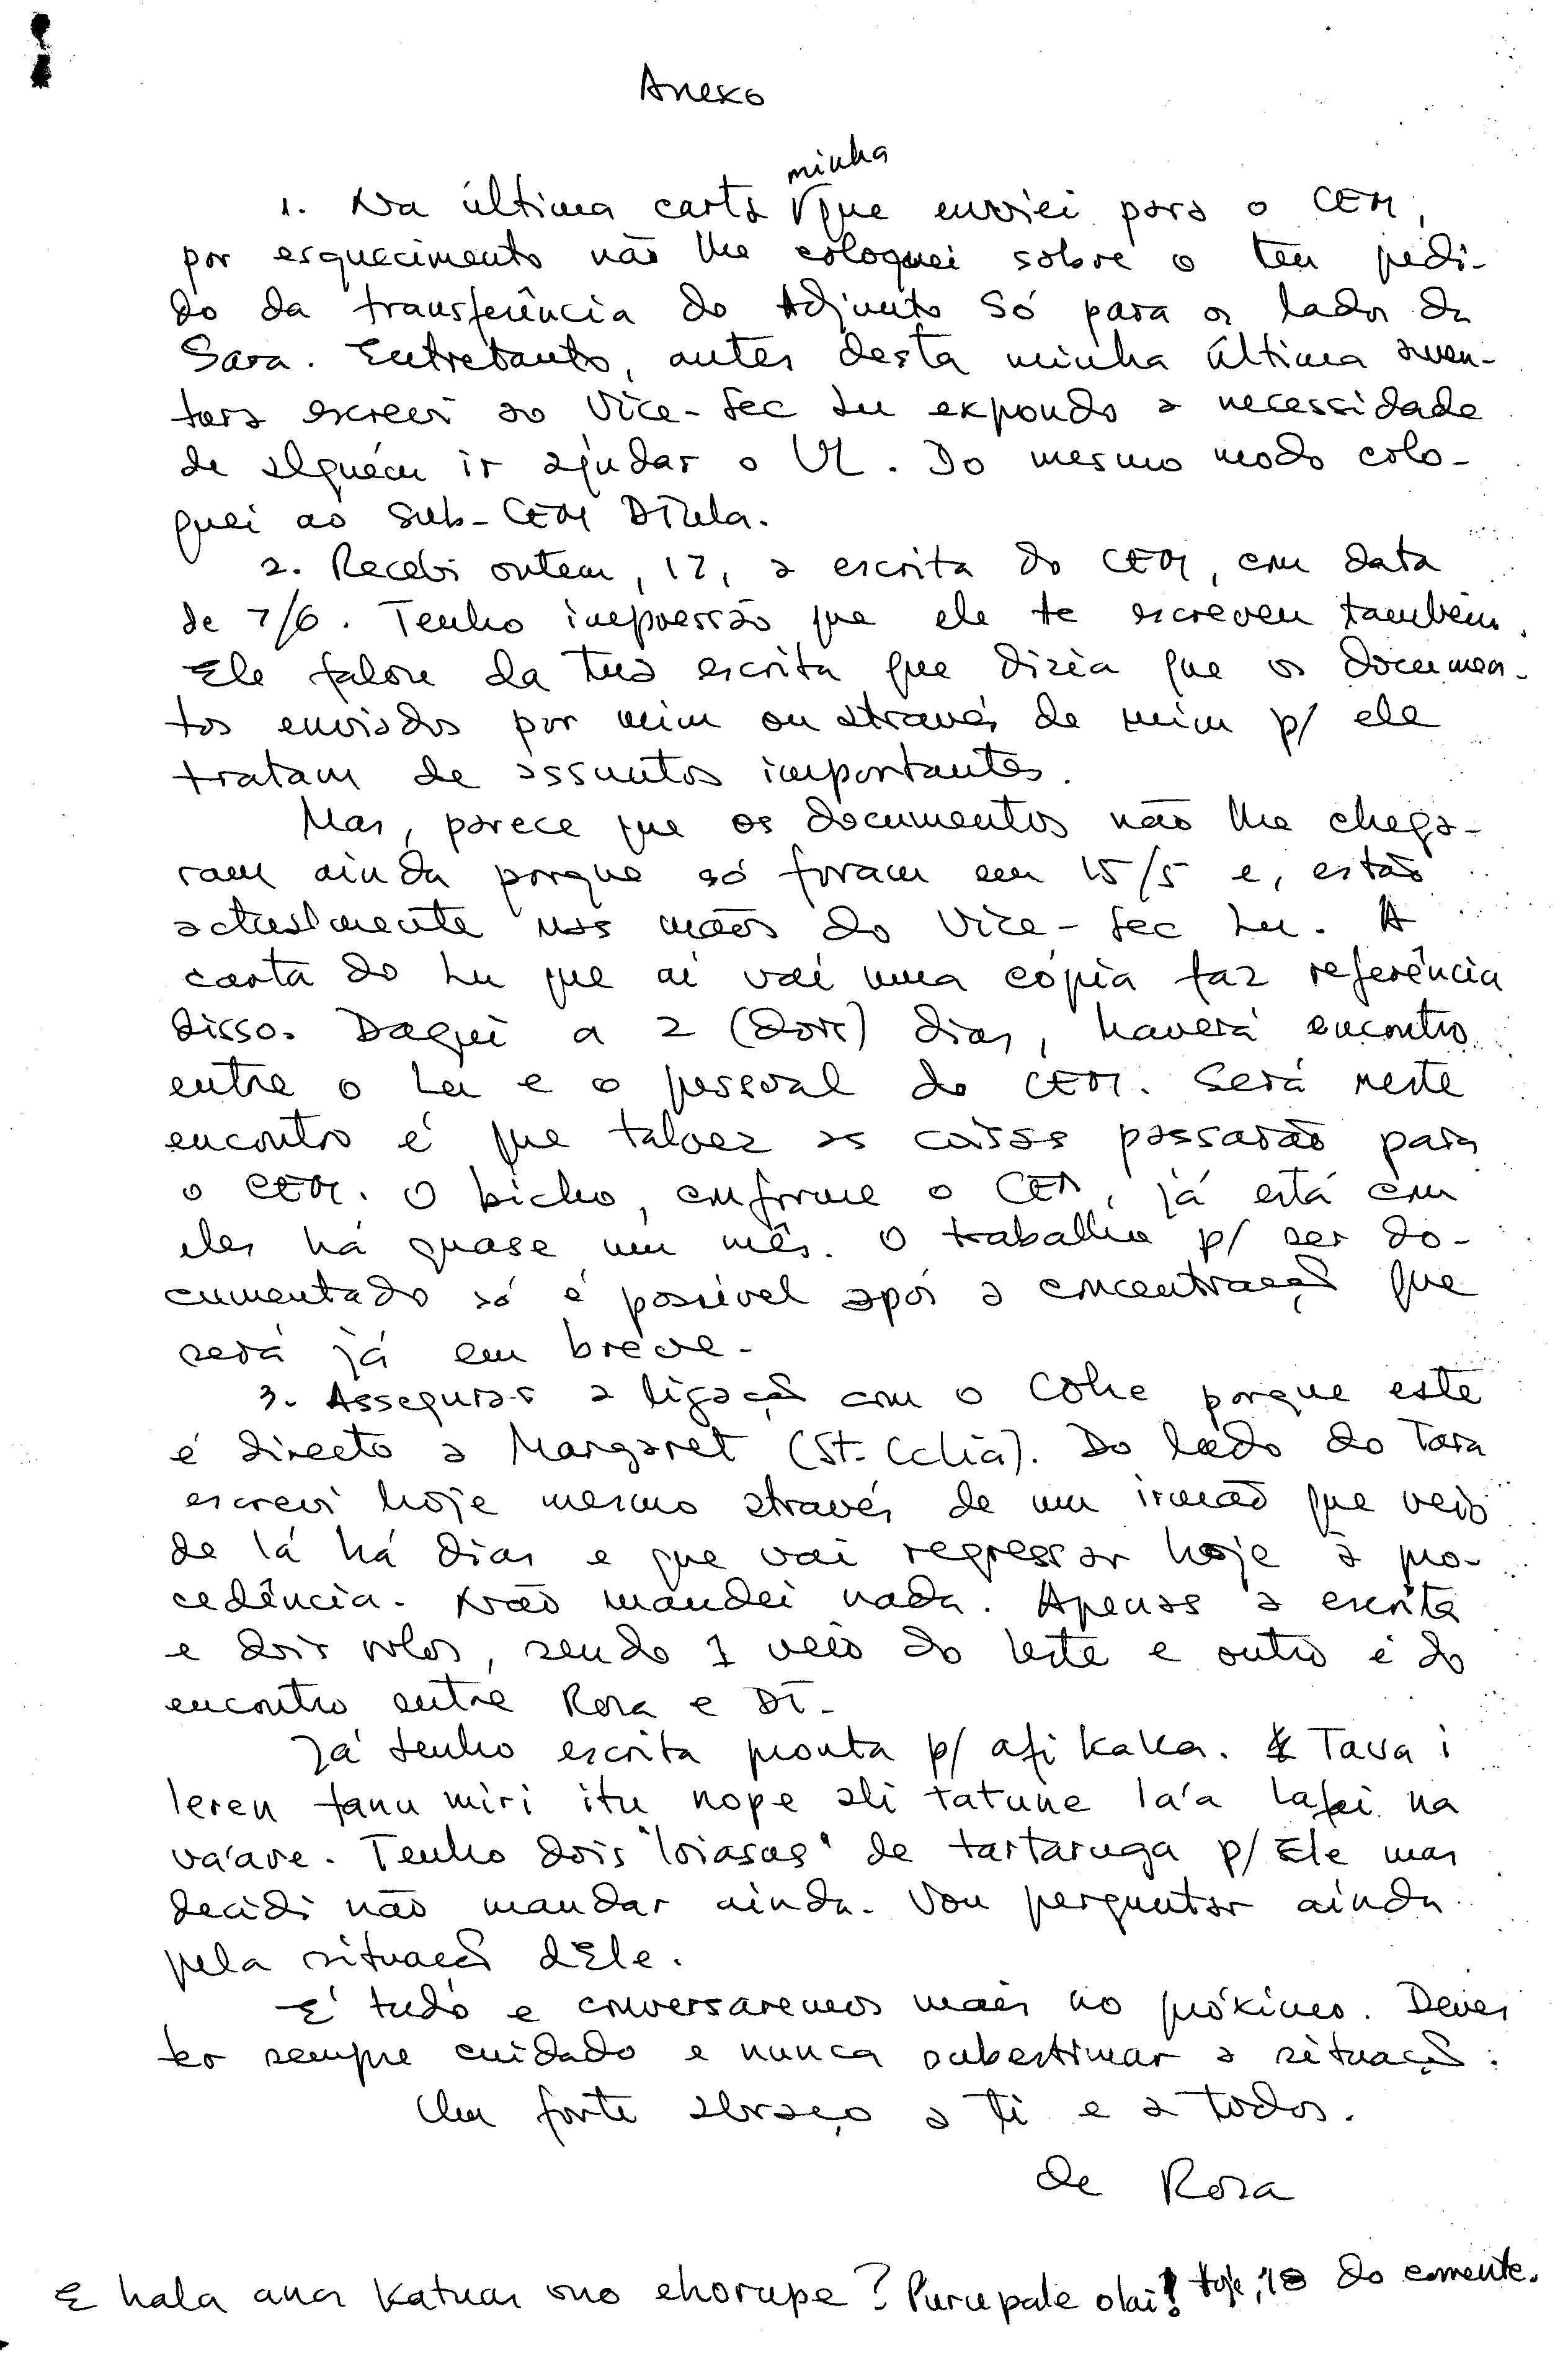 Anexo
minha
1. Na última carta que enviei para o CEM,
por esquecimento não lhe coloquei sobre o teu pedi-
do da transferência do Adjunto Só para os lados da
Sara. Entretanto, antes desta minha última aven-
tura escrevi ao Vice-Sec Lu expondo a necessidade
de alguém ir ajudar o UL. Do mesmo modo colo-
quei ao Sub-CEM Dĩtula.
2. Recebi ontem, 17, a escrita do CEM, com data
de 7/6. Tenho impressão que ele te escreveu também.
Ele falou da tua escrita que dizia que os documen-
tos enviados por mim ou através de mim p/ ele
tratam de assuntos importantes.
Mas, parece que os documentos não lhe chega-
ram ainda porque só foram em 15/5 e, estão
actualmente nas mãos do Vice-Sec Lu. A
carta do Lu que aí vai uma cópia faz referência
disso. Daqui a 2 (dois) dias, haverá encontro
entre o Lu e o pessoal do CEM. Será neste
encontro é que talvez as coisas passarão para
o CEM. O bicho, conforme o CEM, já está com
eles há quase um mês. O trabalho p/ ser do-
cumentado só é possível após a concentração que
será já em breve.
3. Assegurar a ligação com o Cohe porque este
é directo a Margaret (St. Célia). Do lado do Tara
escrevi hoje mesmo através de um irmão que veio
de lá há dias e que vai regressar hoje à pro-
cedência. Não mandei nada. Apenas a escrita
e dois rolos, sendo 1 veio do leste e outro é do
encontro entre Rosa e DT.
Já tenho escrita pronta p/ afi kaka. Tava i
leren tanu miri itu nope ali tatune la'a lafei na
va'are. Tenho dois "loiasus" de tartaruga p/ Ele mas
decidi não mandar ainda. Vou perguntar ainda
pela situação dEle.
É tudo e conversaremos mais no próximo. Deves
ter sempre cuidado e nunca subestimar a situação.
Um forte abraço a ti e a todos.
de Rosa
E hala ana Katuas ono ehorupe? Purupale olai! Hoje, 18 do corrente.